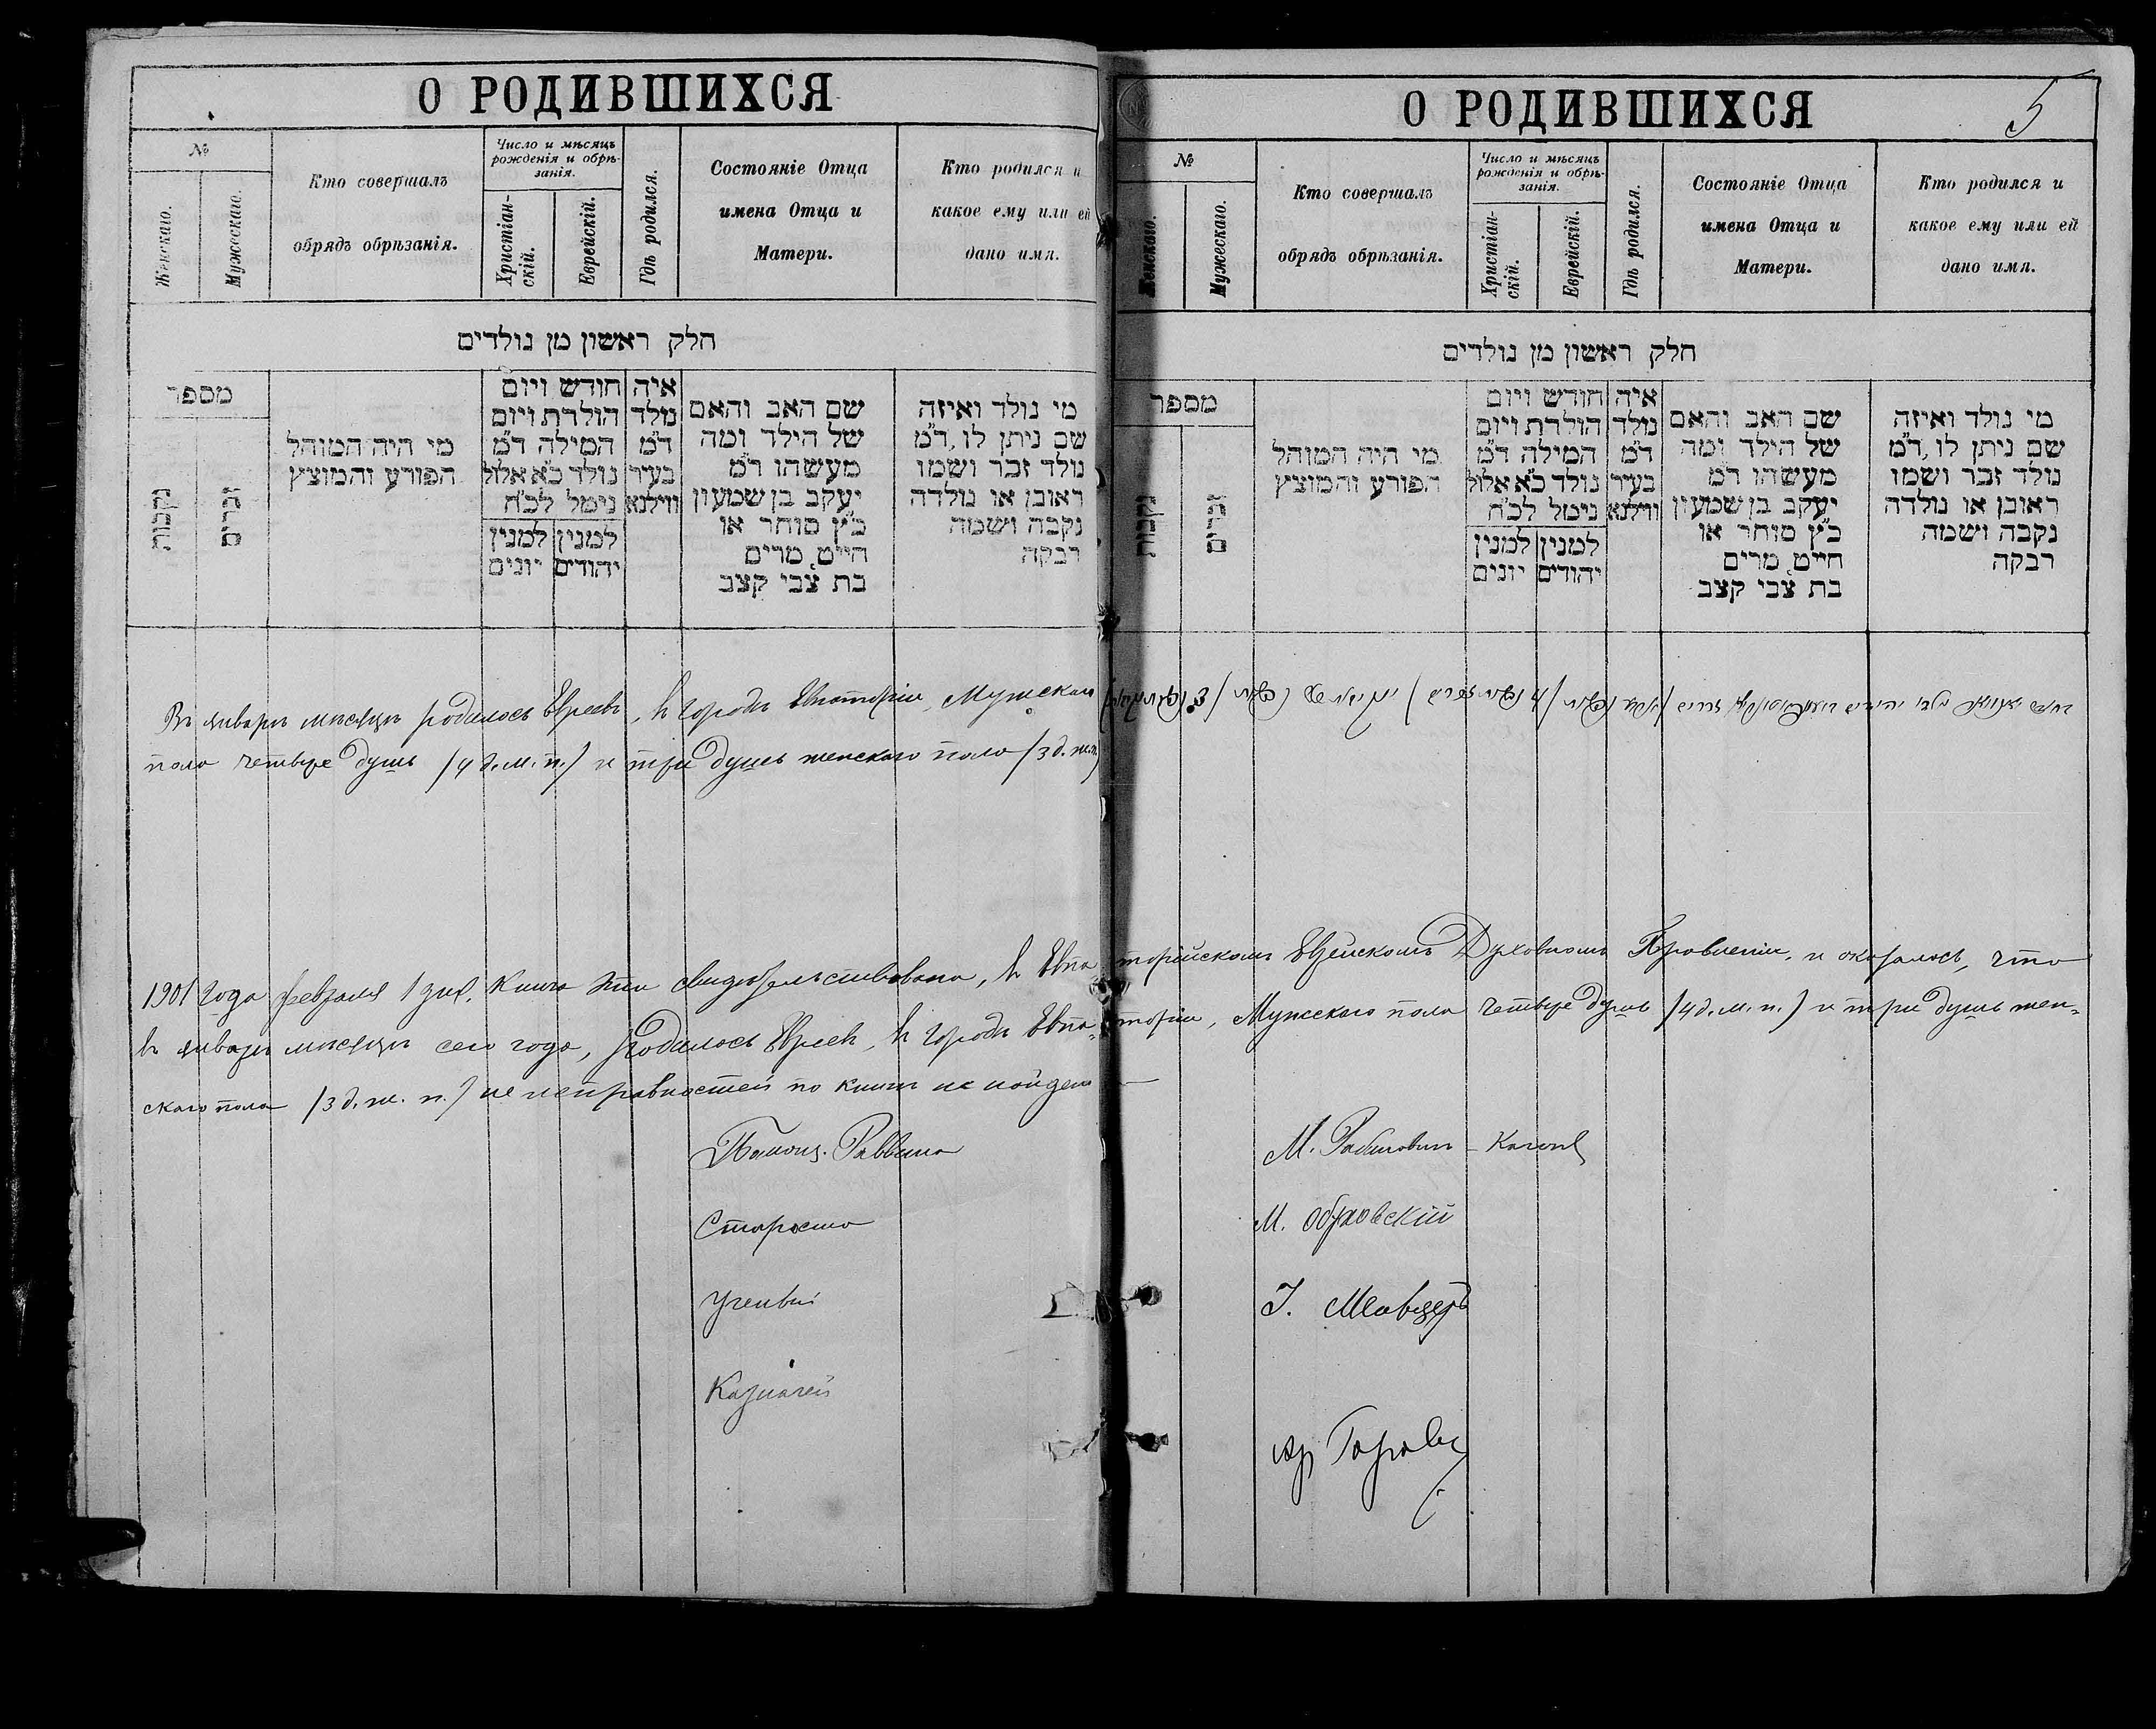 О РОДИВШИХСЯ
№
Женскаго.
Мужескаго.
Кто совершалъ
обрядъ обрѣзанія.
Число и мѣсяцъ
рожденія и обрѣ-
занія.
Христіан-
скій.
Еврейскій.
Гдѣ родился.
Состояніе Отца
имена Отца и
Матери.
Кто родился и
какое ему или ей
дано имя.
חלק ראשון מן נולדים
מספר
נקבות
זכרים
מי היה המוהל
הפורע והמוצץ
חודש ויום
הולדת ויום
המילה ד״מ
נולד כ״א אלול
נימל לכ״ח
למנין למנין
יהודים יונים
איה
נולד
ד״מ
בעיר
ווילנא
שם האב והאם
של הילד ומה
מעשהו ד״מ
יעקב בן שמעון
כ״ץ סוחר או
חייט, מרים
בת צבי קצב
מי נולד ואיזה
שם ניתן לו, ד״מ
נולד זכר ושמו
ראובן או נולדה
נקבה ושמה
רבקה
Въ январѣ мѣсяцѣ родилось Евреевъ, въ городѣ Евпаторіи, Мужскаго
пола четыре душъ /4 д. м. п./ и три душъ женскаго пола /3 д. ж. п./
О РОДИВШИХСЯ
5
№
Женскаго.
Мужескаго.
Кто совершалъ
обрядъ обрѣзанія.
Число и мѣсяцъ
рожденія и обрѣ-
занія.
Христіан-
скій.
Еврейскій.
Гдѣ родился.
Состояніе Отца
имена Отца и
Матери.
Кто родился и
какое ему или ей
дано имя.
חלק ראשון מן נולדים
מספר
נקבות
זכרים
מי היה המוהל
הפורע והמוצץ
חודש ויום
הולדת ויום
המילה ד״מ
נולד כ״א אלול
נימל לכ״ח
למנין למנין
יהודים יונים
איה
נולד
ד״מ
בעיר
ווילנא
שם האב והאם
של הילד ומה
מעשהו ד״מ
יעקב בן שמעון
כ״ץ סוחר או
חייט, מרים
בת צבי קצב
מי נולד ואיזה
שם ניתן לו, ד״מ
נולד זכר ושמו
ראובן או נולדה
נקבה ושמה
רבקה
1901 года февраля 1 дня. Книга эта свидѣтельствована, въ Евпаторійскомъ Еврейскомъ Духовномъ Правленіи, и оказалось, что
въ январѣ мѣсяцѣ сего года, родилось Евреевъ, въ городѣ Евпаторіи, Мужескаго пола четыре душъ /4 д. м. п./ и три душъ жен=
скаго пола /3 д. ж. п./ неисправностей по книгѣ не найдено
Помощ. Раввина М. Рабиновичъ - Каганъ
Староста М.
Ученый
Казначей